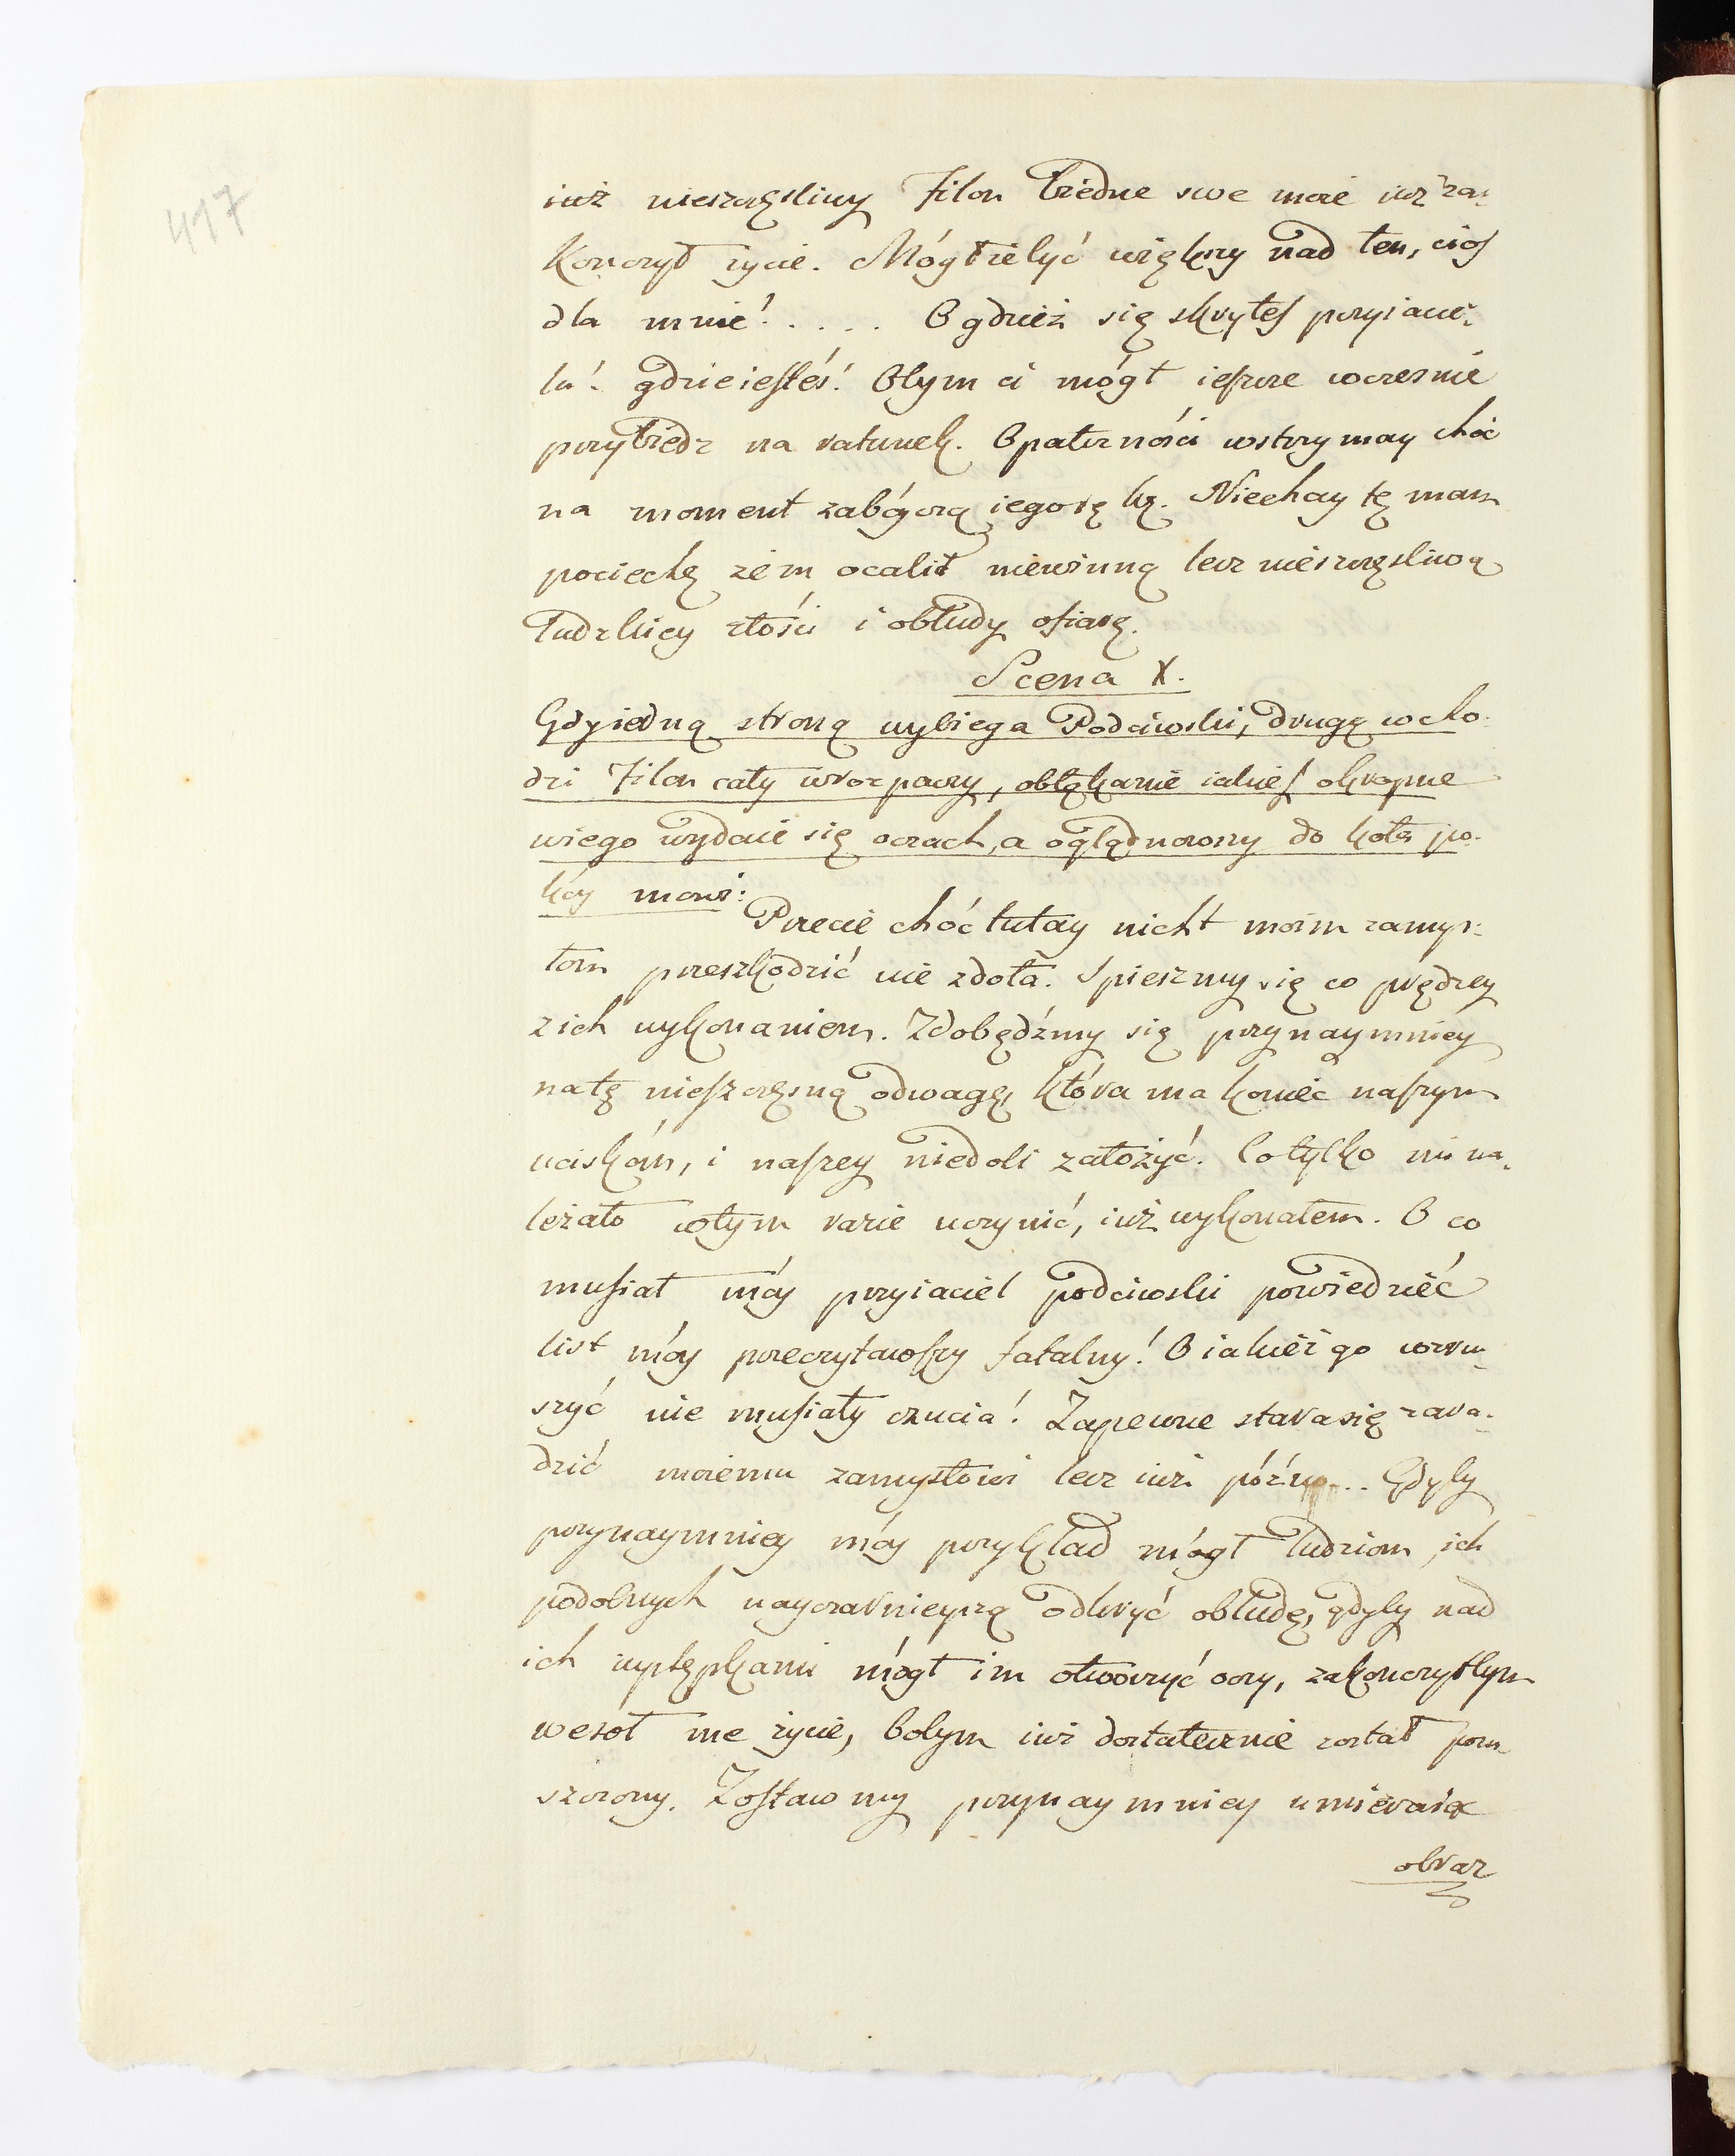 417
iuż nieszczęsliwy Filon biedne swe może iuż za-
kończył życie. Mógłżebyć większy nad ten, cios
dla mnie! . . . . O gdzież się skryłes przyiacie-
lu! gdzieiesteś! Abym ci mógł ieszcze wczesnie
przybiedz na ratunek. Opatrzności wstrzymay choć
na moment zabóyczą iegorękę. Niechay tę mam
pociechę żem ocalił niewinną lecz nieszczęsliwą
ludzkiey złości i obłudy ofiarę.
Scena X.
Gdyiedną stroną wybiega Podciwski, drugą wcho-
dzi Filon cały wrozpaczy, obłąkanie iakieś okropne
wiego wydaie się oczach, a oglądnowszy do koła po-
kóy mowi:
Przecie chóć tutay nicht moim zamys-
łom przeszkodzić nie zdoła. Spieszmy się co prędzey
z ich wykonaniem. Zdobędźmy się przynaymniey
natę nieszczęsną odwagę, która ma koniec naszym
uciskóm, i naszey niedoli założyć. Co tylko mi na-
leżało wtym razie uczynić, iuż wykonałem. O co
musiał móy przyiaciel podciwski powiedzieć
list móy przeczytawszy fatalny! O iakież go wzru-
szyć nie musiały czucia! Zapewne starasię zara-
dzić moiemu zamysłowi lecz iuż późno... Gdyby
przynaymniey móy przykład mógł ludziom, ich
podobnych nayczarnieyszą odkryć obłudę, gdyby nad
ich występkami mógł im otworzyć oczy, zakończyłbym
wesół me życie, bobym iuż dostatecznie został pom-
szczony. Zostawmy przynaymniey umieraiąc
obraz